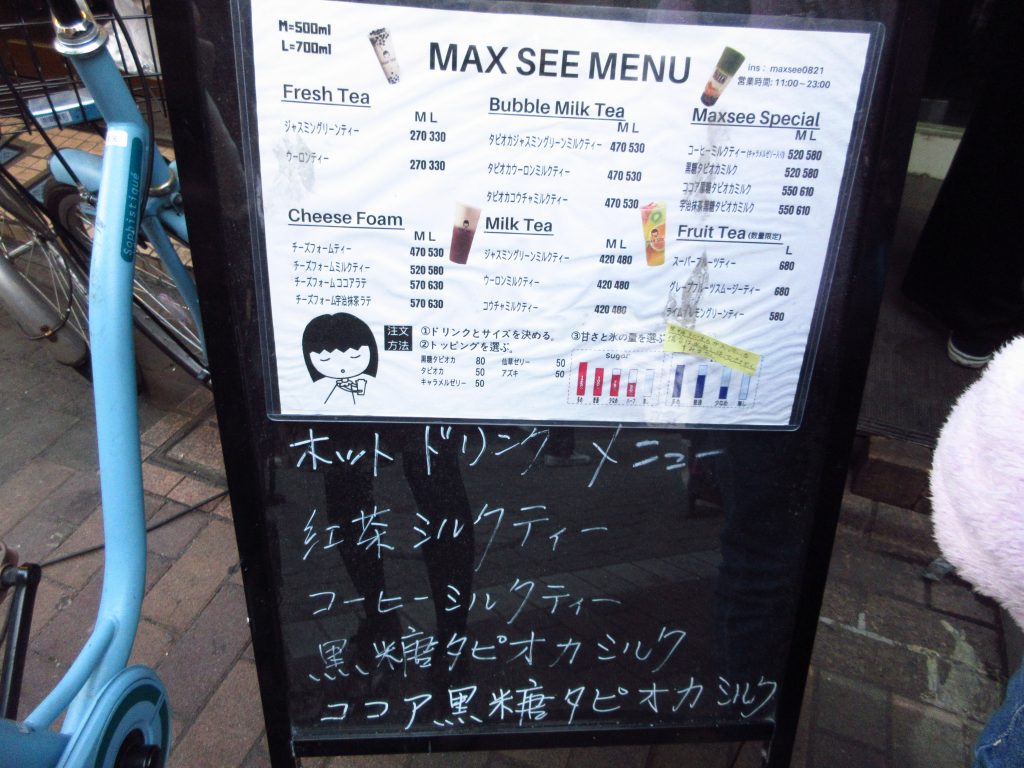 M=500ml
L=700ml
MAX SEE MENU
ins : maxsee0821
営業時間: 11:00~23:00
Fresh Tea
M L
ジャスミングリーンティー 270 330
ウーロンティー 270 330
Bubble Milk Tea
M L
タピオカジャスミングリーンミルクティー 470 530
タピオカウーロンミルクティー 470 530
タピオカコウチャミルクティー 470 530
Maxsee Special
M L
コーヒーミルクティー (キャラメルゼリー入り) 520 580
黒糖タピオカミルク 520 580
ココア黒糖タピオカミルク 550 610
宇治抹茶黒糖タピオカミルク 550 610
Cheese Foam
M L
チーズフォームティー 470 530
チーズフォームミルクティー 520 580
チーズフォームココアラテ 570 630
チーズフォーム宇治抹茶ラテ 570 630
Milk Tea
M L
ジャスミングリーンミルクティー 420 480
ウーロンミルクティー 420 480
コウチャミルクティー 420 480
Fruit Tea (数量限定)
L
スーパーフルーツティー 680
グレープフルーツスムージーティー 680
ライムアレモングリーンティー 580
注文
方法
①ドリンクとサイズを決める。
②トッピングを選ぶ。
黒糖タピオカ 80 仙草ゼリー 50
タピオカ 50 アズキ 50
キャラメルゼリー 50
③甘さと氷の量を選ぶ
sugar
ホットドリンク メニュー
紅茶ミルクティー
コーヒーミルクティー
黒糖タピオカミルク
ココア黒糖タピオカミルク
Sophistiqué